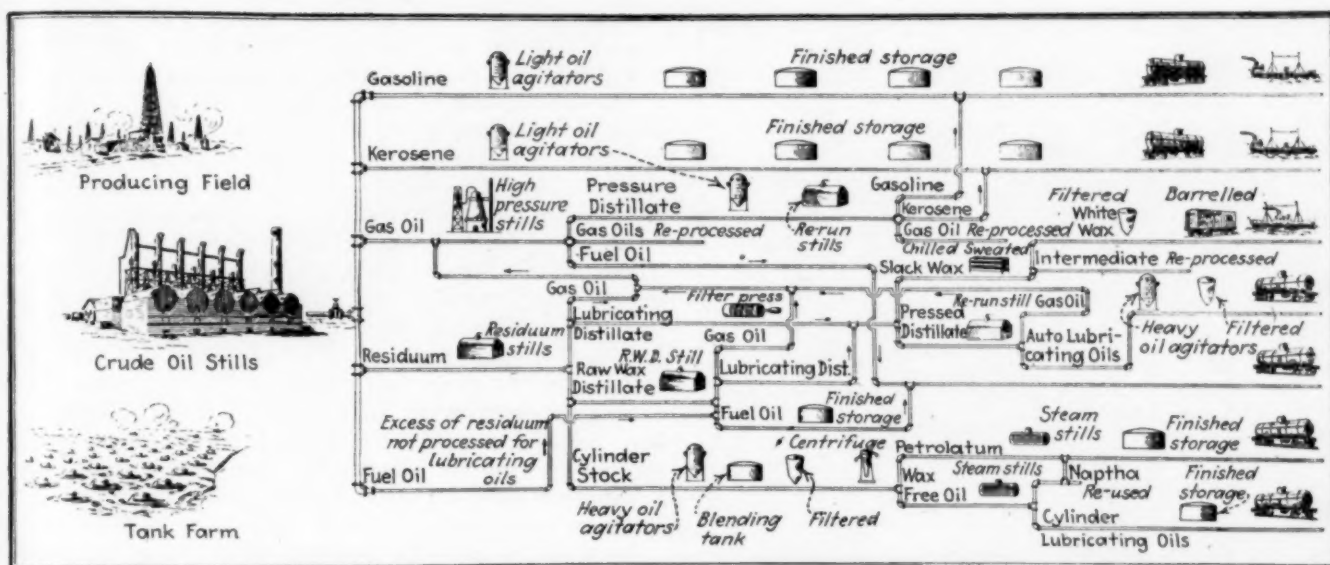 Producing Field
Crude Oil Stills
Tank Farm
Gasoline
Light oil
agitators
Finished storage
Kerosene
Light oil
agitators
Finished storage
Gas Oil
High
pressure
stills
Pressure
Distillate
Gas Oils Re-processed
Fuel Oil
Re-run
stills
Gasoline
Kerosene
Gas Oil Re-processed
Filtered
White
Wax
Barrelled
Chilled Sweated
Slack Wax
Intermediate Re-processed
Gas Oil
Lubricating
Distillate
Filter press
Pressed
Distillate
Re-run still
Gas Oil
Auto Lubri-
cating Oils
Heavy
oil agitators
Filtered
Residuum
Residuum
stills
Raw Wax
Distillate
R.W.D. Still
Gas Oil
Lubricating Dist.
Fuel Oil
Finished
storage
Fuel Oil
Excess of residuum
not processed for
lubricating
oils
Cylinder
Stock
Heavy oil
agitators
Blending
tank
Filtered
Centrifuge
Petrolatum
Steam
stills
Finished
storage
Wax
Free Oil
Steam stills
Naptha
Re-used
Finished
storage
Cylinder
Lubricating Oils